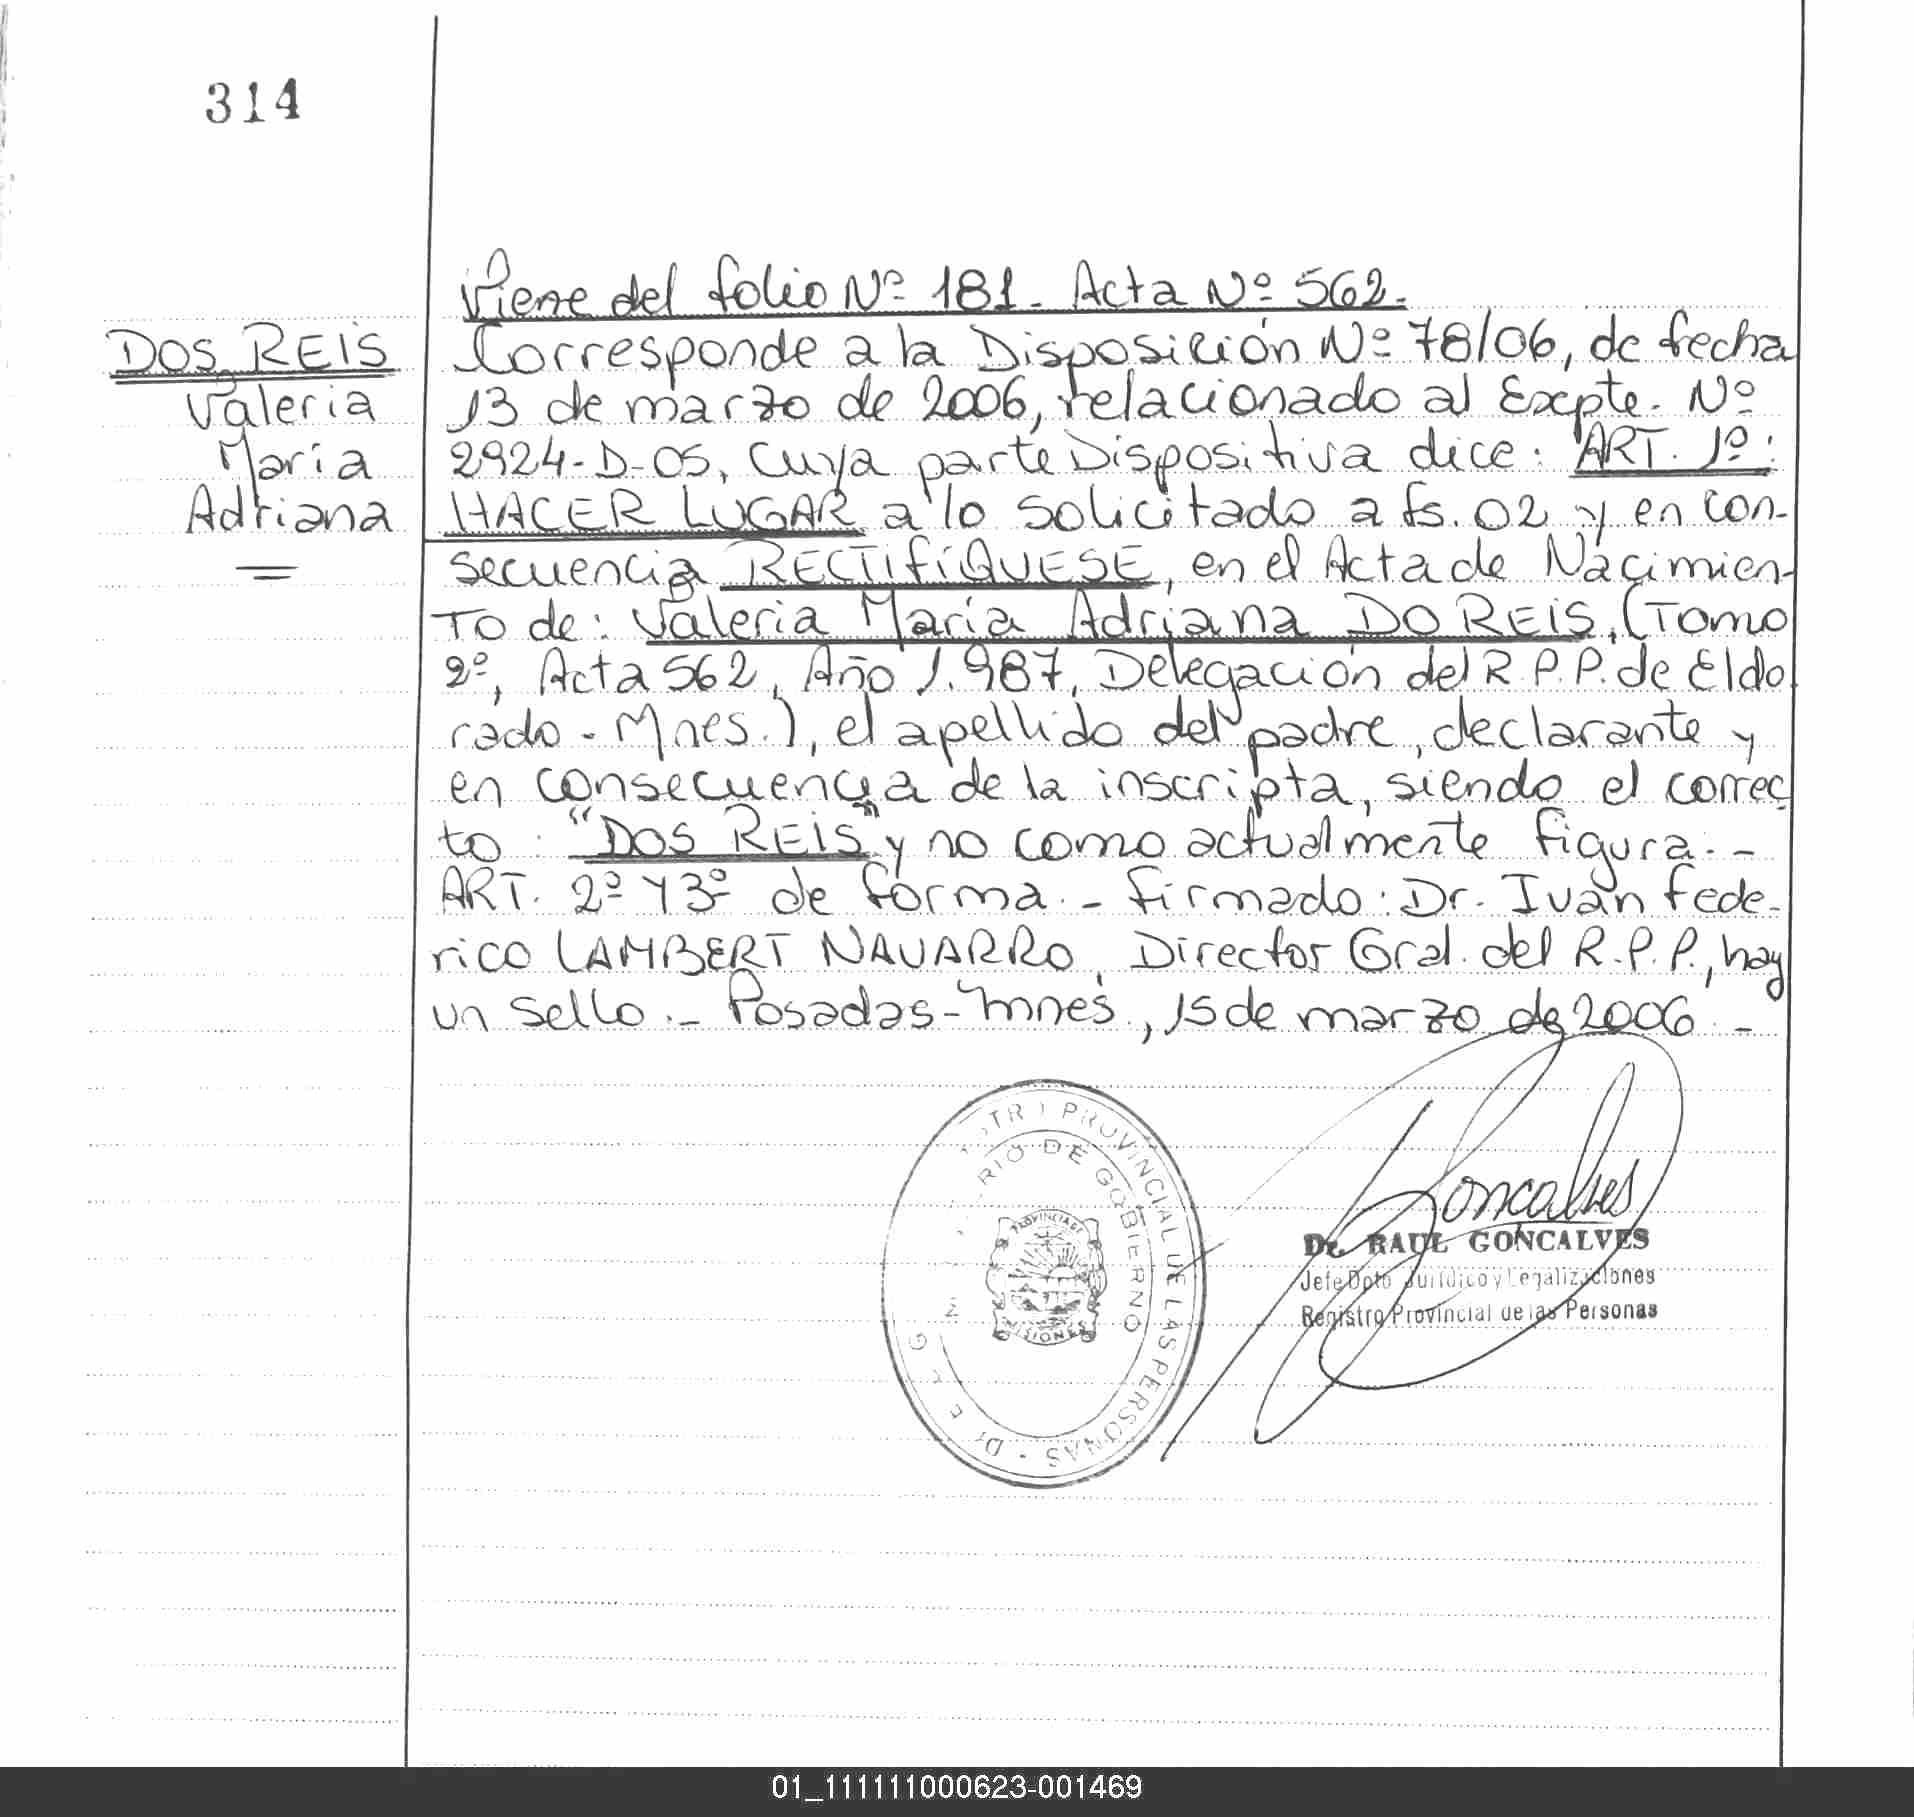 314
Viene del folio Nº 181. Acta Nº 562.
DOS REIS
Valeria
María
Adriana
Corresponde a la Disposición Nº 78/06, de fecha
13 de marzo de 2006, relacionado al Expte. Nº
2924-D-05, cuya parte Dispositiva dice: ART. 1º:
HACER LUGAR a lo solicitado a fs. 02 y en con-
secuencia RECTIFÍQUESE, en el Acta de Nacimien-
to de: Valeria María Adriana DO REIS, (Tomo
2º, Acta 562, Año 1.987, Delegación del R.P.P. de Eldo
rado - Mnes.), el apellido del padre, declarante y
en consecuencia de la inscripta, siendo el correc
to: "DOS REIS" y no como actualmente figura.-
ART. 2º Y 3º de forma.- Firmado: Dr. Iván Fede-
rico LAMBERT NAVARRO, Director Gral. del R.P.P., hay
un sello.- Posadas-Mnes., 15 de marzo de 2006.-
PROVINCIAL DE LAS PERSONAS
DE GOBIERNO
PROVINCIA DE
MISIONES
Goncalves
Dr. RAUL GONCALVES
Jefe Dpto Jurídico y Legalizaciones
Registro Provincial de las Personas
01_111111000623-001469